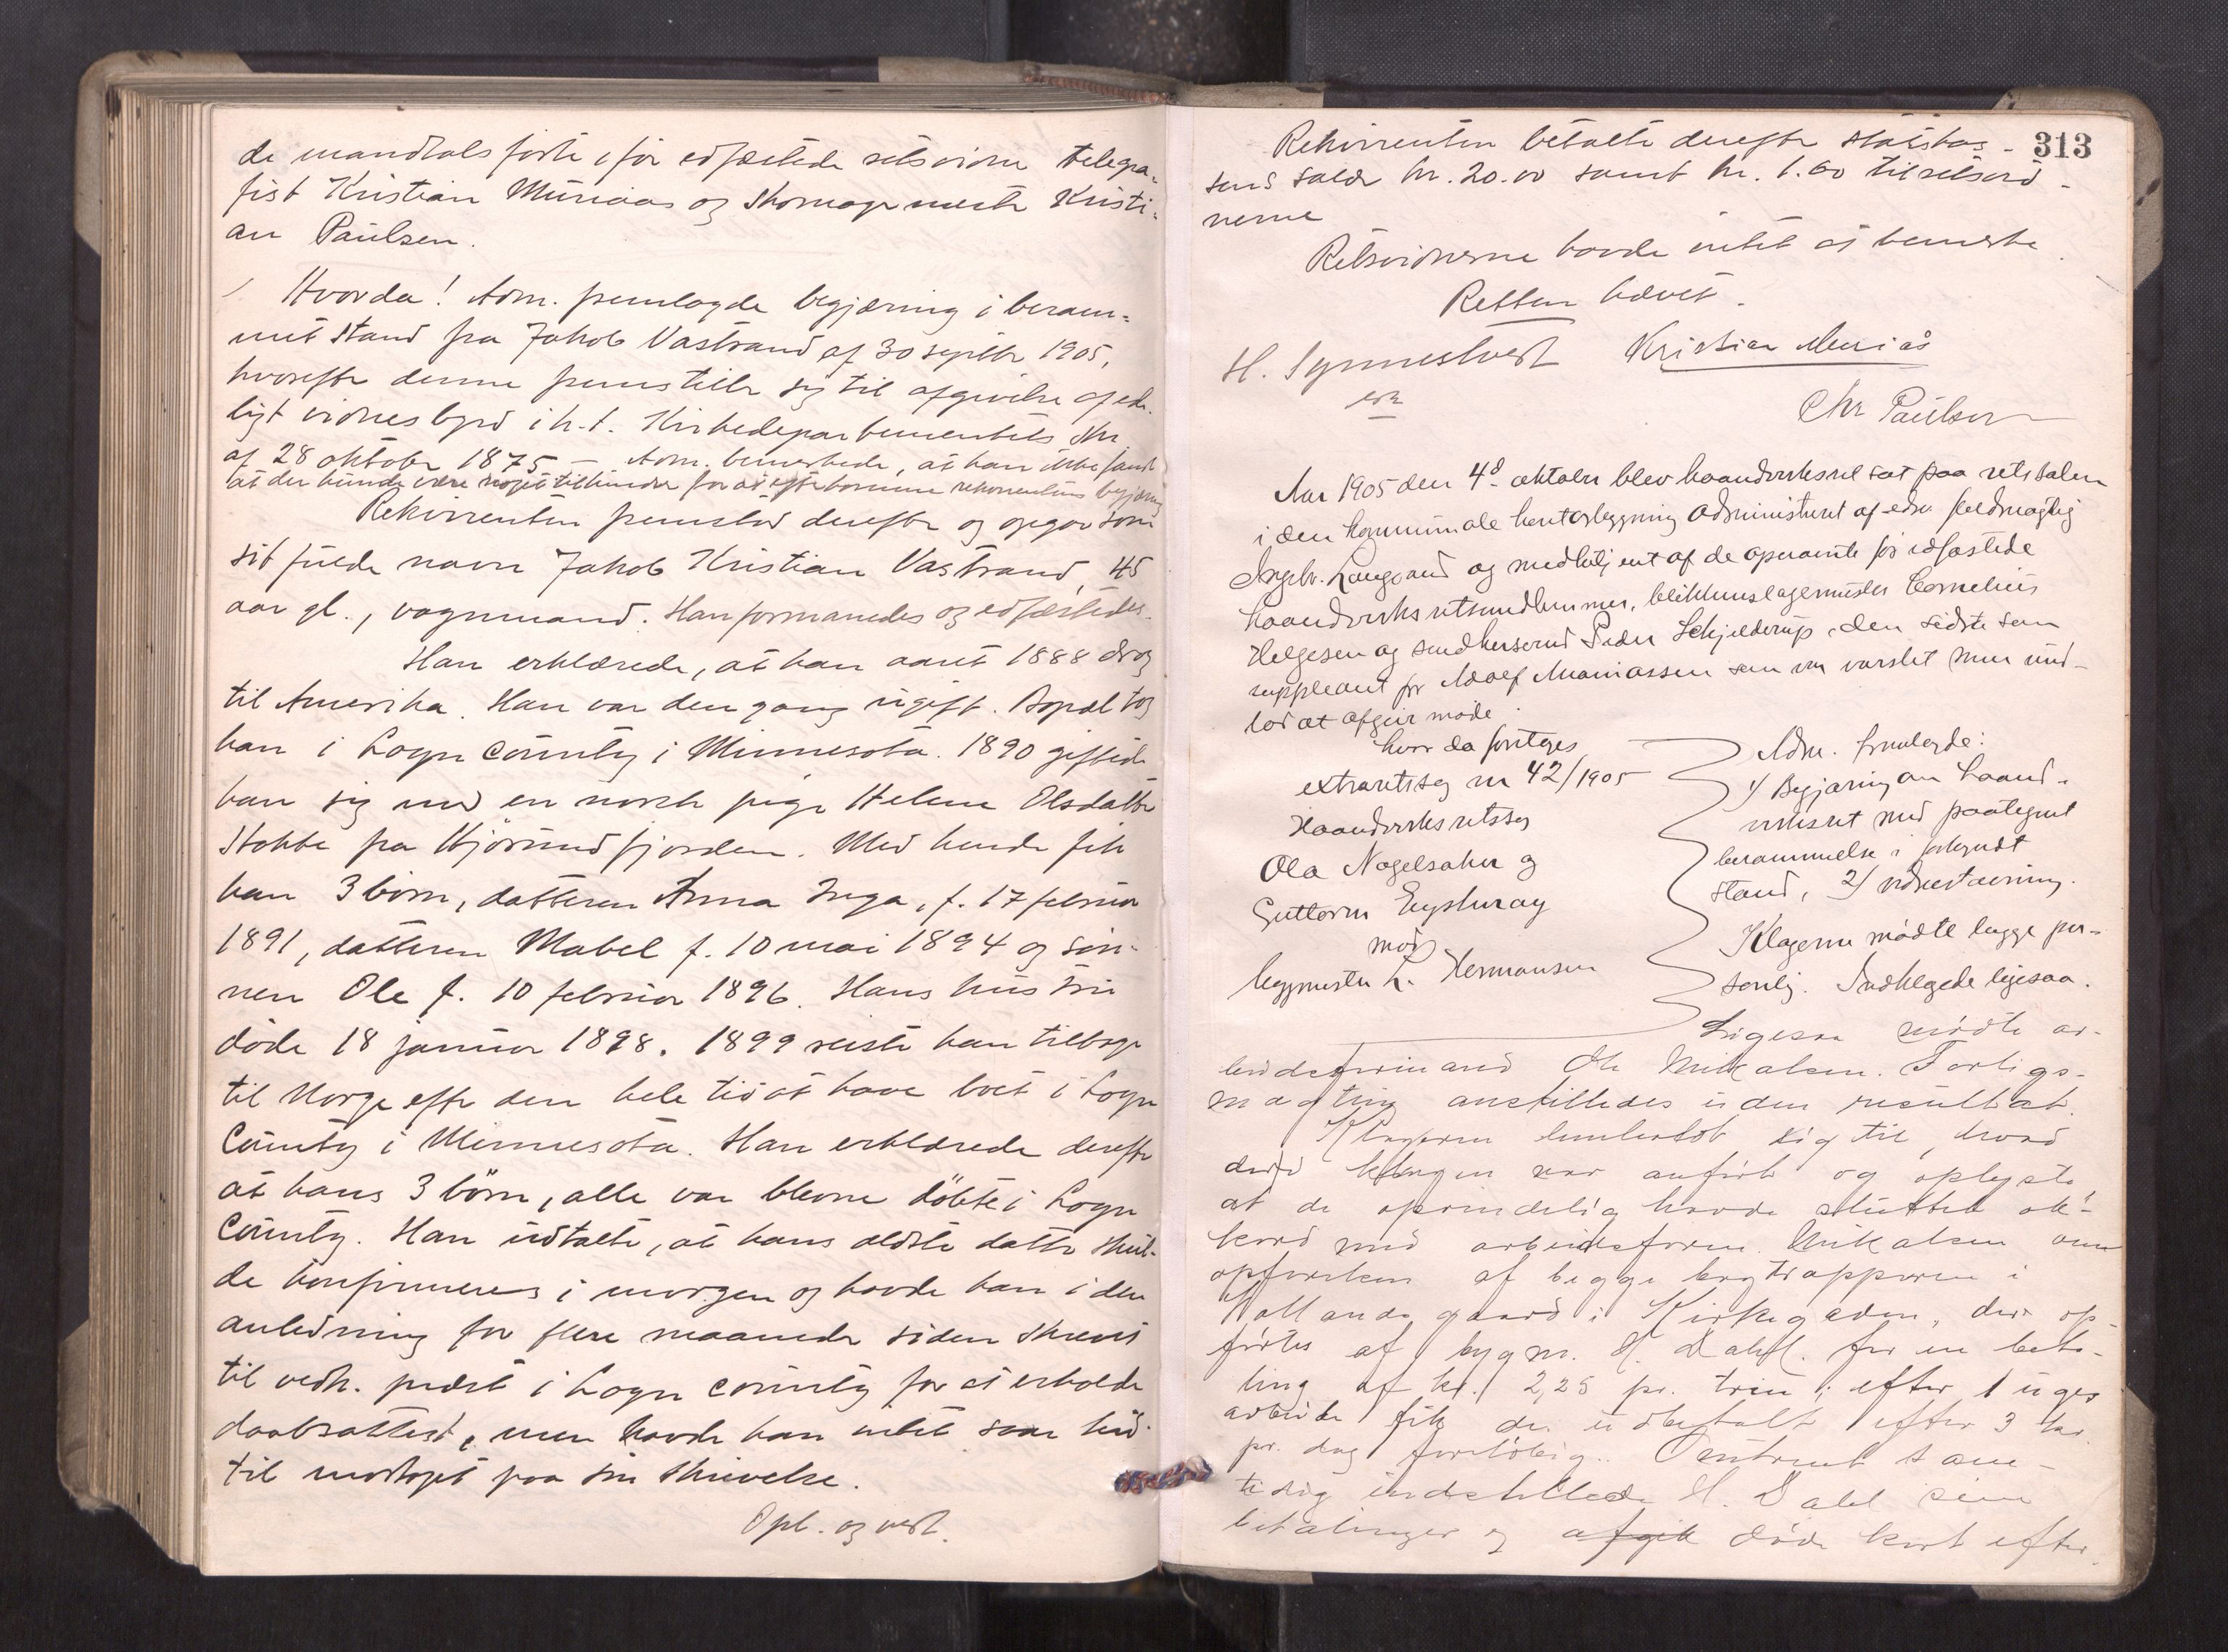 de mandtalsførte, før edfæstede retsvidner telegra-
fist Kristian Muriaas og skomagermester Kristi-
an Paulsen.
Hvorda! Adm. fremlagde begjæring i beram-
met stand fra Jakob Vastrand af 30 septbr 1905,
hvorefter denne fremstiller sig til afgivelse af ed-
ligt vidnesbyrd i h.t. Kirkedepartementets skr.
af 28 oktober 1875 — Adm. bemerkede, at han ikke fandt
at der kunde være noget tilhinder for at efterkomme rekvirentens begjæring
Rekvirenten fremstod derefter og opgav som
sit fulde navn Jakob Kristian Vastrand, 45
aar gl., vognmand. Han formanedes og edfæstedes.
Han erklærede, at han aaret 1888 drog
til Amerika. Han var den gang ugift. Bopæl tog
han i Logn County i Minnesota. 1890 giftede
han sig med en norsk pige Helene Olsdatter
Stokke fra Hjørundfjorden. Med hende fik
han 3 børn, datteren Anna Inga, f. 17 februar
1891, datteren Mabel f. 10 mai 1894 og søn-
nen Ole f. 10 februar 1896. Hans hustru
døde 18 januar 1898. 1899 reiste han tilbage
til Norge efter den hele tid at have boet i Logn
County i Minnesota. Han erklærede derefter
at hans 3 børn, alle var blevne döbte i Logn
County. Han udtalte, at hans ældste datter skul-
de konfirmeres i morgen og havde han i den
anledning for flere maaneder siden skrevet
til vedk. prest i Logn County for at erholde
daabsattest, men havde han intet svar hid-
til modtaget paa sin skrivelse.
Opl. og vedt.
313
Rekvirenten betalte derefter statskas-
sens salær kr. 20.00 samt kr. 1.60 til retsvid-
nerne
Retsvidnerne havde intet at bemerke.
Retten hævet.
H. Synnestvedt Kristian Muriås
Chr Paulsen
Aar 1905 den 4d oktober blev haandverksret sat paa retssalen
i den kommunale kontorbygning administreret af edsv. fuldmægtig
Ingebr. Langsand og medbetjent af de opnævnte før edfæstede
haandverksretsmedlemmer, blikkenslagermester Cornelius
Helgesen og smedkersvend Peder Schjelderup, den sidste som
suppleant for Adolf Ananiassen som var varslet men und-
lod at afgive møde.
hvor da foretoges
extraretssag nr 42/1905
Haandverksretssag
Ola Nagelsaker og
Guttorm
mod
bygmester L. Hermansen
Adm. fremlagde:
1/ Begjæring om haand-
verksret med paategnet
berammelse i forkyndt
stand, 2/ vidnestævning.
Klagerne mødte begge per-
sonlig. Indklagede ligesaa.
Ligesaa mødte ar-
beidsformand Ole Mikalsen. Forligs-
mægling anstilledes uden resultat.
Klagerne henholdt sig til, hvad
der i klagen var anført og oplyste
at de oprindelig havde sluttet ak-
kord med arbeidsform. Mikalsen om
opførelsen af begge bagtrapperne i
gaard i Kirkegaden, der op-
førtes af bygm. H. Dahl. for en beta-
ling af kr. 2,25 pr. trin; efter 1 uges
arbeide fik de udbetalt efter 3 kr.
pr. dag foreløbig. Omtrent sam-
tidig indstillede H. Dahl sine
betalinger og afgik døde kort efter.